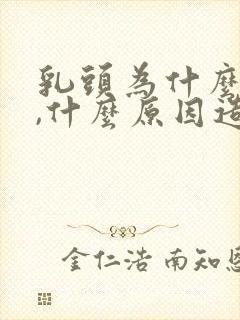 乳頭為什麼
,什麼原因造
金仁浩 南知恩